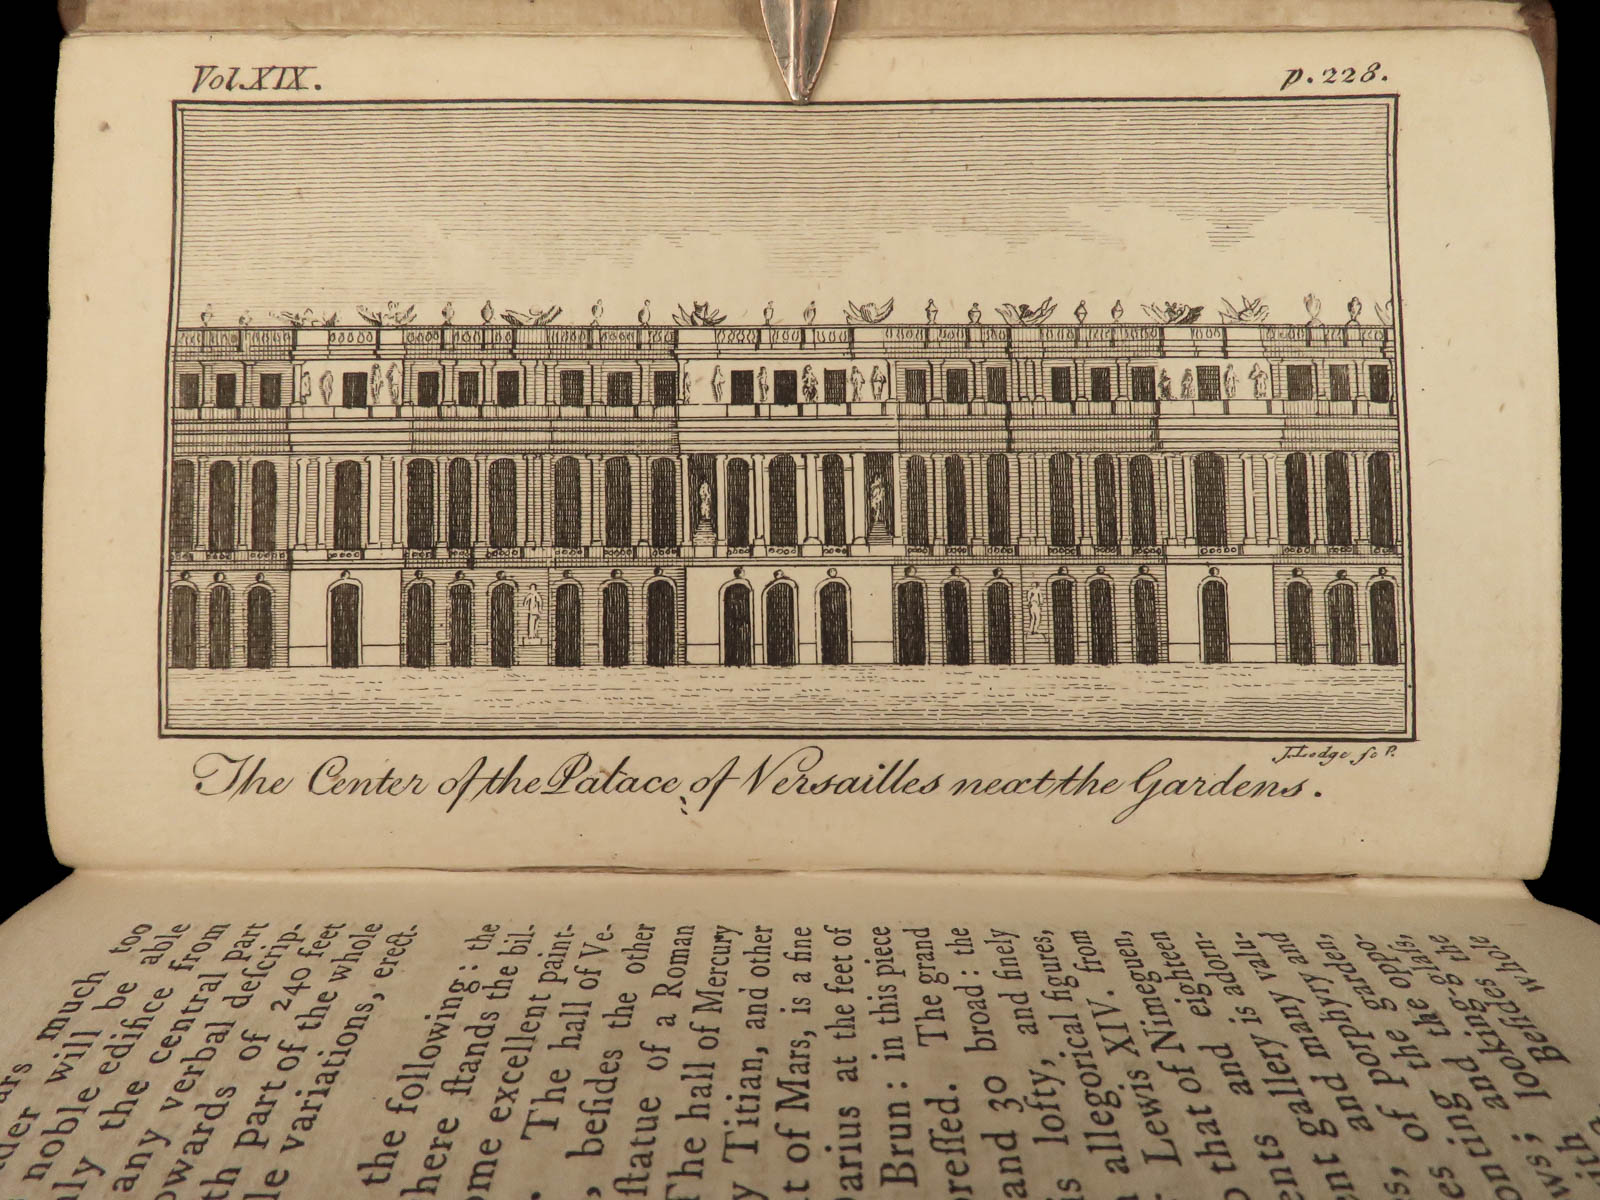 Vol. XIX.
p. 228.
J. Lodge. sc P.
The Center of the Palace, of Versailles next the Gardens.
much too
der will be able
noble edifice from
the central part
any verbal deſcrip-
owards of 240 feet
th part of the whole
le variations, erect.
the following: the
here ſtands the bil-
ome excellent paint-
. The hall of Ve-
, beſides the other
ſtatue of a Roman
The hall of Mercury
y Titian, and other
t of Mars, is a fine
Darius at the feet of
Brun: in this piece
preſſed. The grand
and 30 broad: the
is lofty, and finely
allegorical figures,
Lewis XIV. from
that of Nimeguen,
of eighteen
ents and adorn-
gallery is valu-
ent and many and
and porphyry,
s, of the garden,
es of the oppo-
the glaſs,
onting the
and looking
ws; beſides
Beſide whole
with